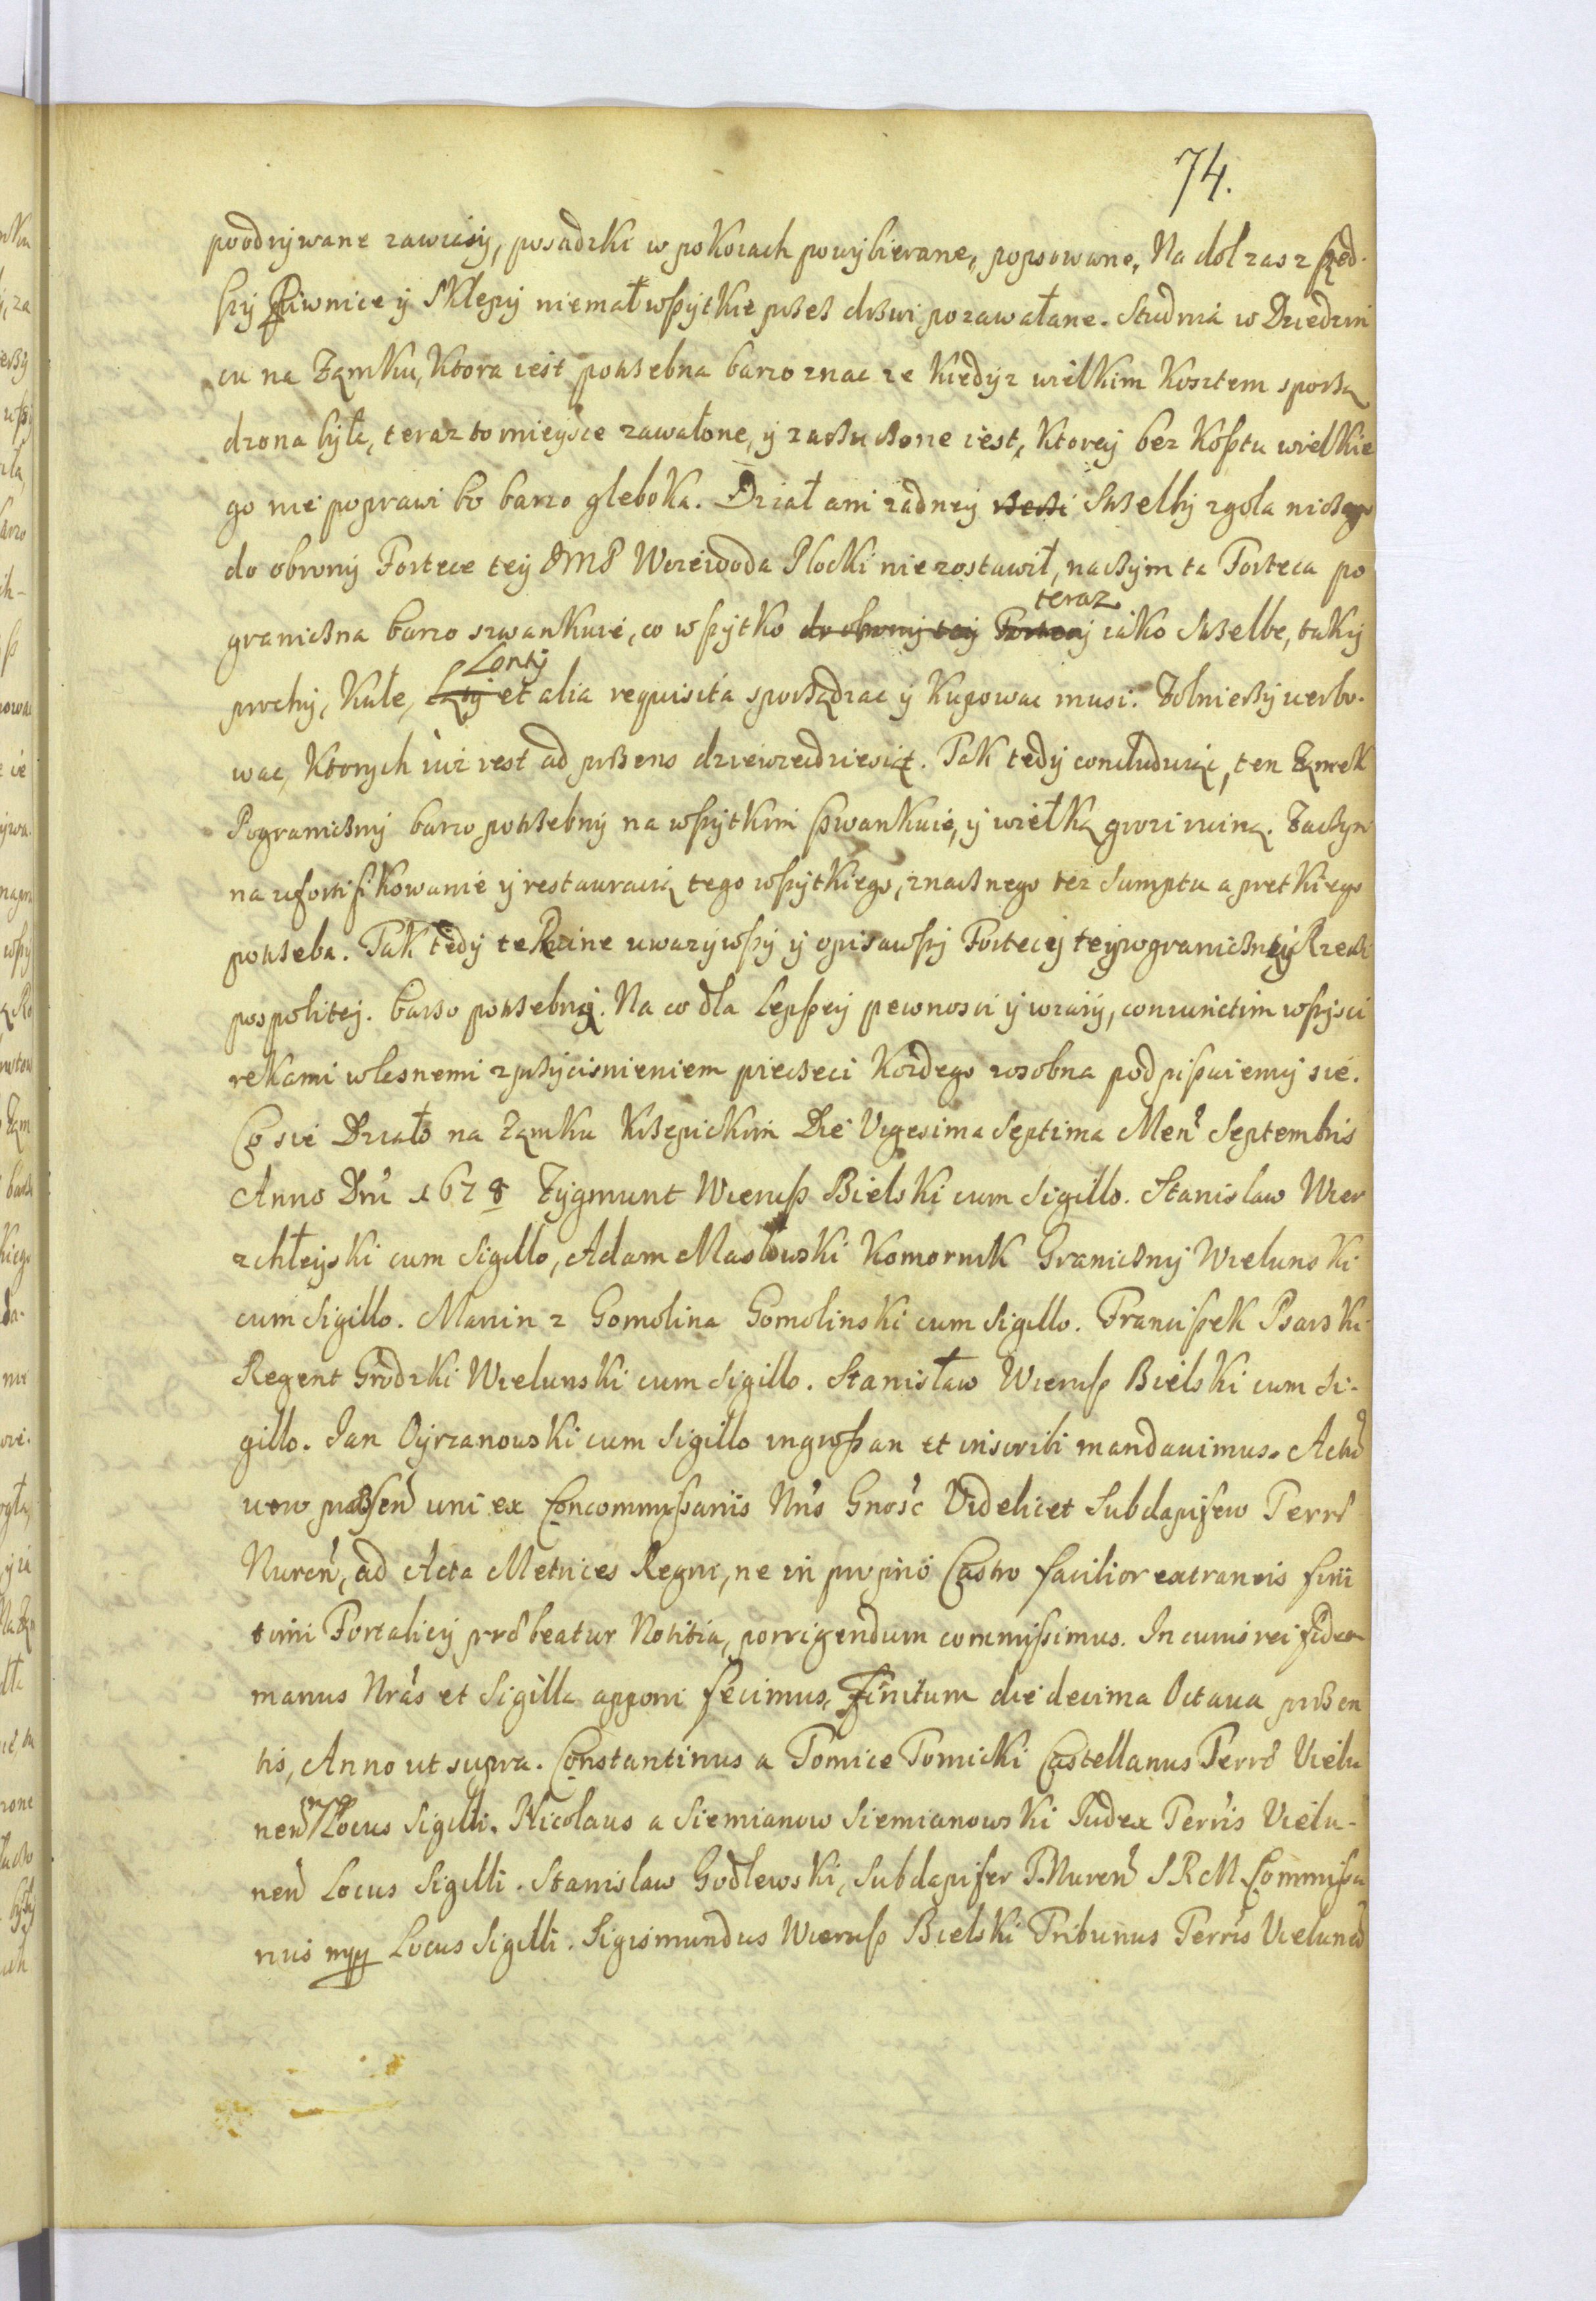 74.
poodrywane zawiasy, posadzki w pokoiach powybierane, popsowane, Na dol zas z szed-
szy Piwnice y Sklepy niemał wszytkie przez drzwi pozawałane. Studnia w Dziedzin
cu na Zamku, Ktora iest potrzebna barzo znac ze Kiedy z wielkim Kosztem sporzą
dzona była, teraz to mieysce zawałone, y zarzucone iest, Ktorey bez Kosztu wielkie
go nie poprawi bo barzo gleboka. Dział ani zadney Strzelby zgoła niczego
do obrony Fortece tey JMP Woiewoda Plocki nie zostawił, naczym ta Forteca po
graniczna barzo szwankuie, co wszytko do obrony tey Fortecy teraz iako Strzelbe, taky
prochy, Kule, Lonty et alia requisita sporządzac y Kupowac musi. Zolnierzy verbo-
wac, Ktorych iuz iest ad praesens dziewiecdziesiąt. Tak tedy concluduiąc, ten Zamek
Pograniczny barzo potrzebny na wszytkim szwankuie, y wielką grozi ruiną. Zaczym
na ufortifikowanie y restauracią tego wszytkiego, znacznego tez Sumptu a pretkiego
potrzeba. Tak tedy te Ruine uwazywszy y opisawszy Fortecy tey pograniczney Rzeczy
pospolitey. barzo potrzebney. Na co dla lepszey pewnosci y wiary, coniunctim wszysci
rekami wlesnemi z przycisnieniem pieczeci Kozdego zosobna podpisuiemy sie.
Co sie Działo na Zamku Krzepickim Die Vigesima Septima Men Septembris
Anno Dni 1678 Zygmunt Wierusz Bielski cum Sigillo. Stanislaw Wier
zchleyski cum Sigillo, Adam Masłowski Komornik Graniczny Wielunski
cum Sigillo. Marcin z Gomolina Gomolinski cum Sigillo. Franciszek Psarski
Regent Grodzki Wielunski cum Sigillo. Stanisław Wierusz Bielski cum Si-
gillo. Jan Oyrzanowski cum Sigillo ingrossari et inscribi mandauimus. Actu
vero praesen uni ex Concommissariis Nris Gnosc Videlicet Subdapifero Terrae
Nuren, ad Acta Metrices Regni, ne in proprio Castro facilior extraneis fini
timi Fortalicy praebeatur Notitia, porrigendum commissimus. In cuius rei fidem
manus Nras et Sigilla apponi fecimus, Finitum die decima Octaua praesen
tis, Anno ut supra. Constantinus a Tomice Tomicki Castellanus Terrae Vielu
nen Locus Sigilli. Nicolaus a Siemianow Siemianowski Iudex Terris Vielu-
nen Locus Sigilli. Stanislaw Godlewski, Subdapifer T. Nuren S R M Commissa
rius mpp Locus Sigilli. Sigismundus Wierusz Bielski Tribunus Terris Vielunen